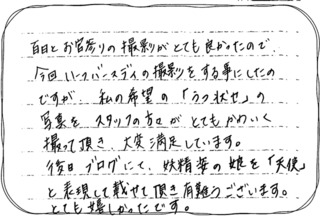 百日とお宮参りの撮影がとても良かったので、
今回ハーフバースデイの撮影をする事にしたの
ですが、私の希望の「うつ伏せ」の
写真を スタッフの方々が とてもかわいく
撮って頂き、大変満足しています。
後日ブログにて、妖精姿の娘を「天使」
と表現して載せて頂き有難うございます。
とても嬉しかったです。